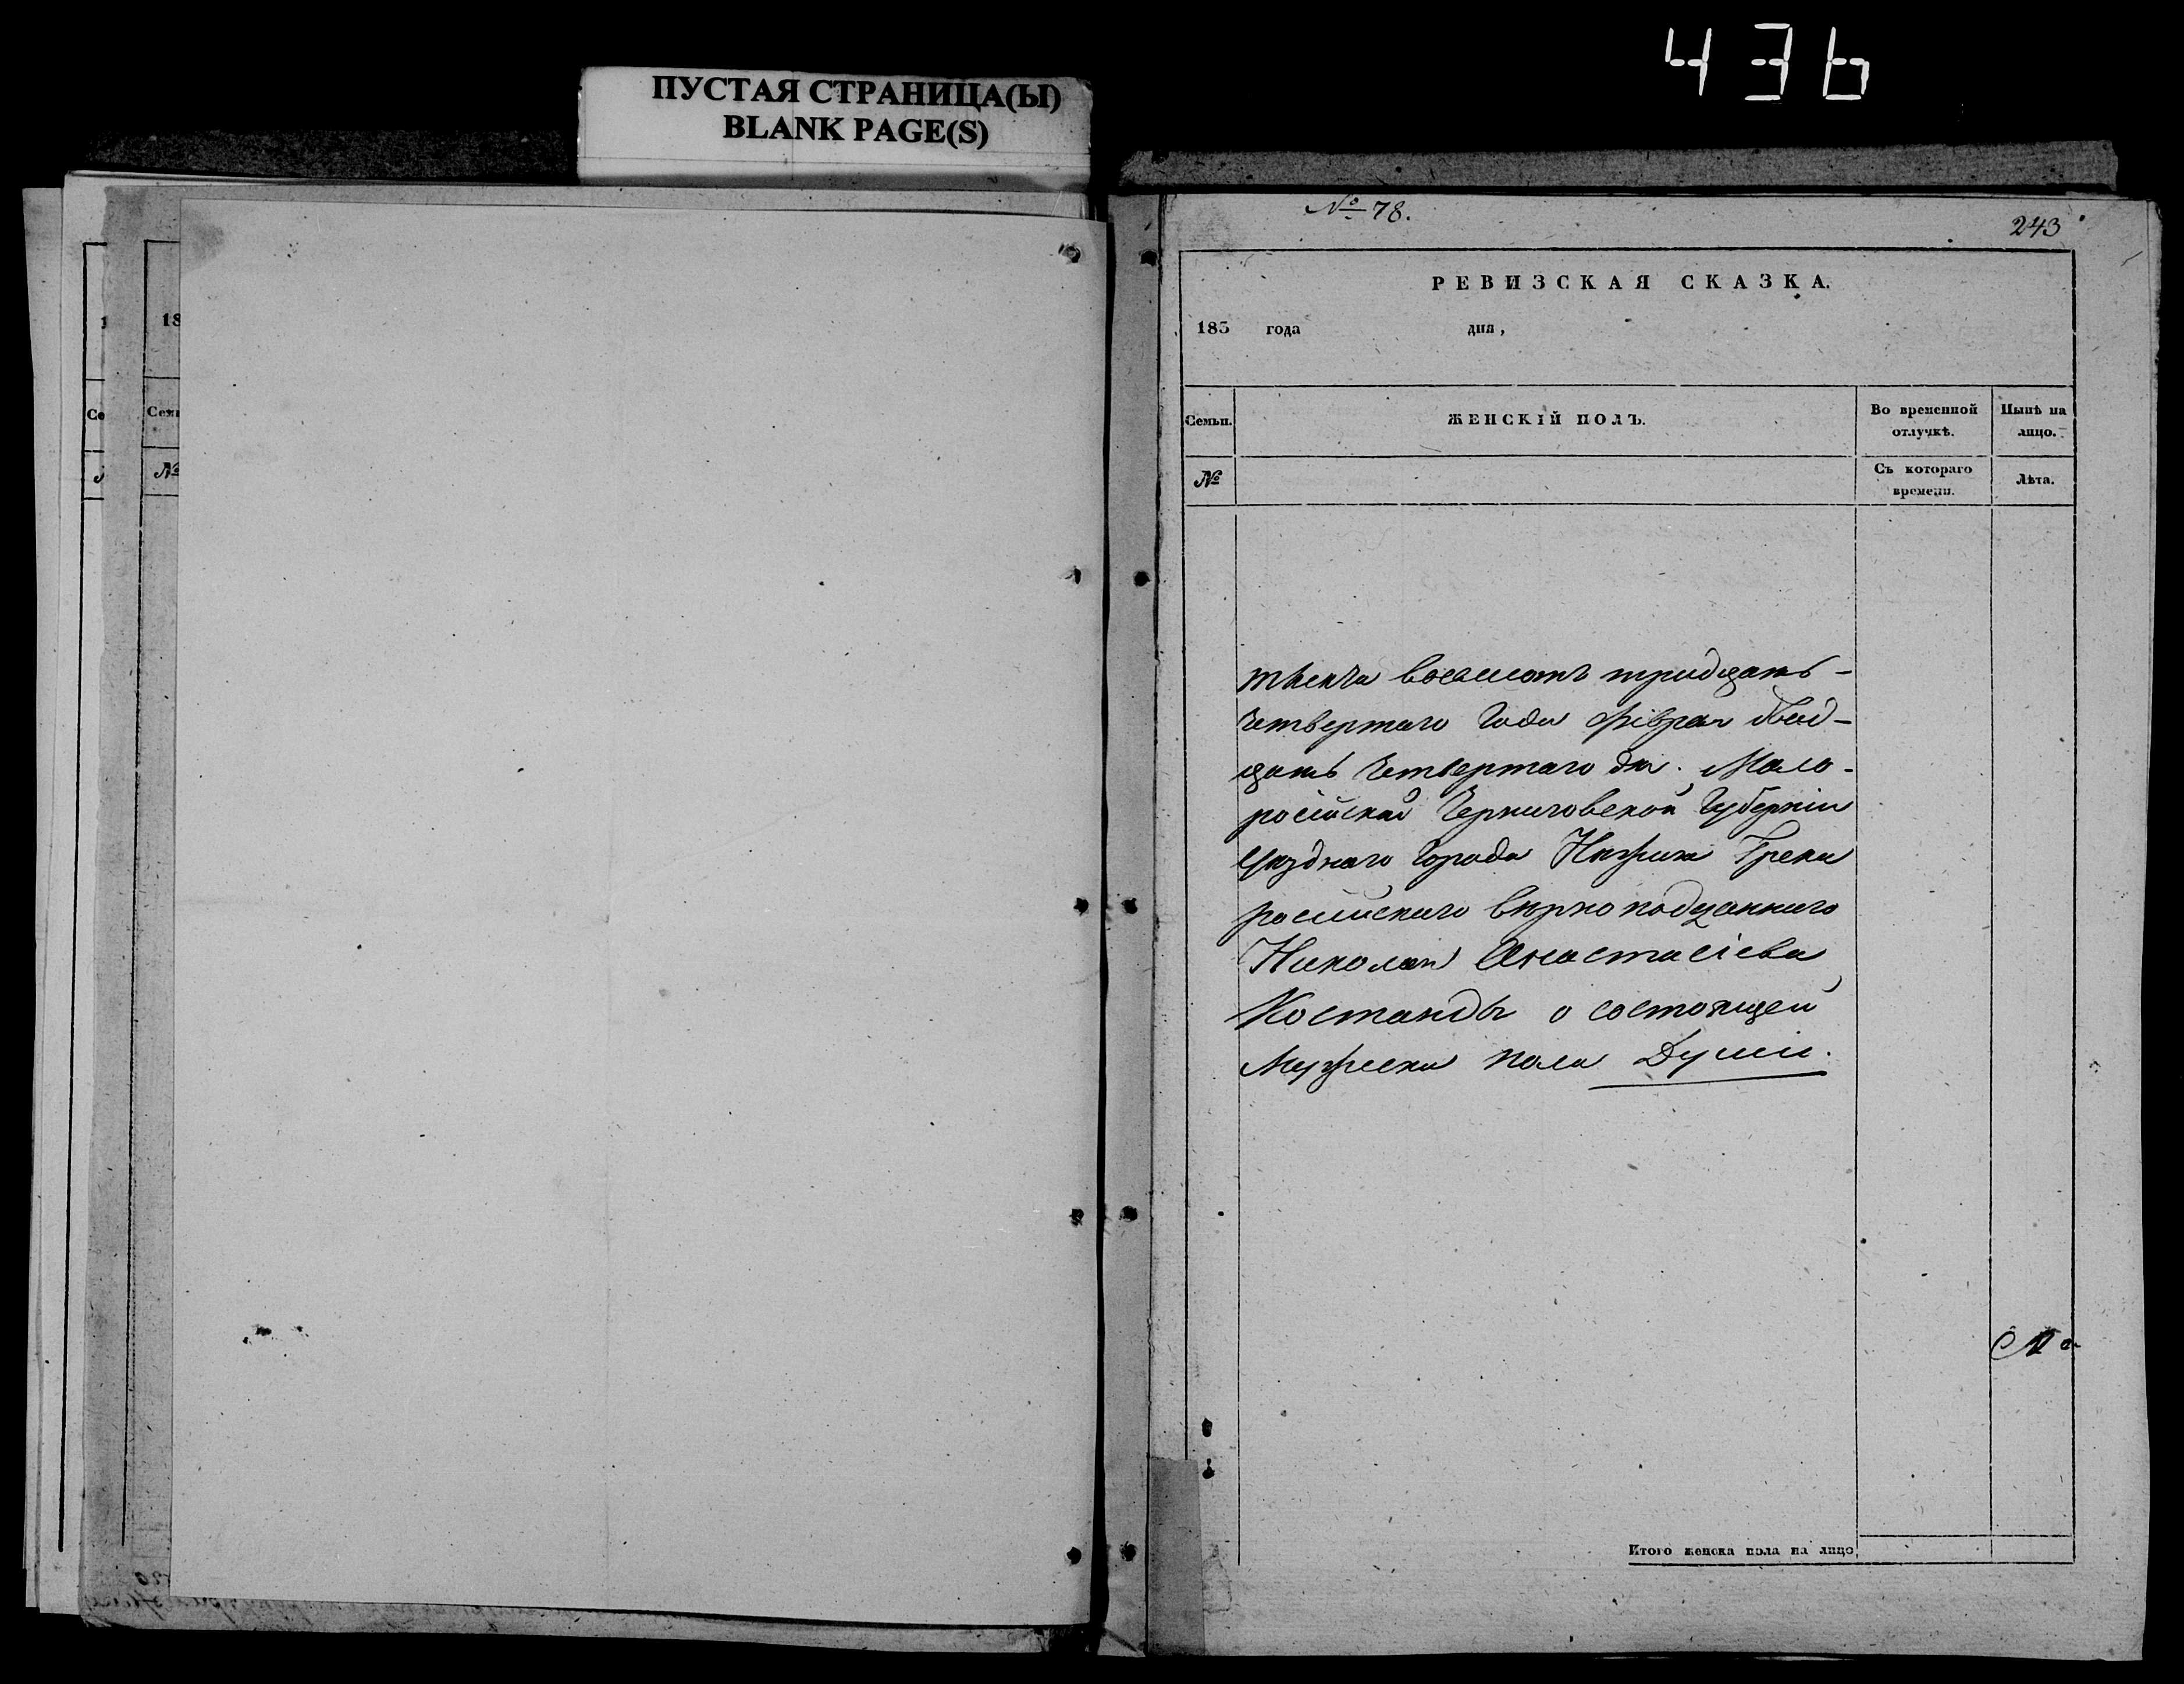 436
ПУСТАЯ СТРАНИЦА(Ы)
BLANK PAGE(S)
№ 78.
243
РЕВИЗСКАЯ СКАЗКА.
183 года дня,
Семьи.
ЖЕНСКІЙ ПОЛЪ.
Во временной отлучкѣ.
Нынѣ на лицо.
№
Съ котораго времени.
Лѣта.
тысяча восемсотъ тридцать-
четвертаго Года февраля двад-
цать четвертаго дня. Мало-
російской Черниговской Губерніи
уѣзднаго города Нѣжина Грека
россійскаго вѣрноподданнаго
Николая Анастасіева
Костанды о состоящей
Мужеска пола Души.
Итого женска пола на лицо
18
Семь
№